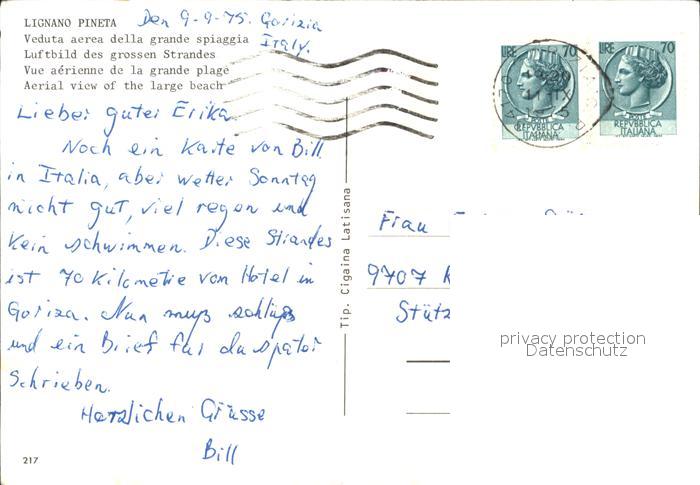 LIGNANO PINETA
Den 9-9-75. Gorizia
Italy.
Veduta aerea della grande spiaggia
Luftbild des grossen Strandes
Vue aérienne de la grande plage
Aerial view of the large beach
Lieber guter Erika
Noch ein Karte von Bill
in Italia, aber wetter Sonntag
nicht gut, viel regen und
Kein schwimmen. Diese Strandes
ist 70 Kilometre von Hotel in
Goriza. Nun muß schluß
und ein Brief für du später
Schrieben.
Herzlichen Grüsse
Bill
217
Tip. Cigaina Latisana
LIRE 70
POSTE
REPVBBLICA
ITALIANA
LIRE 70
POSTE
REPVBBLICA
ITALIANA
Frau
9707 K
Stütz
privacy protection
Datenschutz